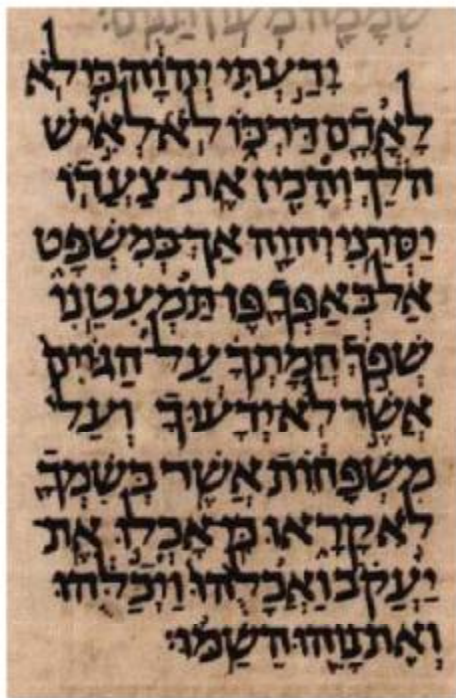 שְׁמָמָה מְעוֹן תַּנִּים׃
יָדַעְתִּי יְהוָה כִּי לֹא
לָאָדָם דַּרְכּוֹ לֹא לְאִישׁ
הֹלֵךְ וְהָכִין אֶת־צַעֲדוֹ
יַסְּרֵנִי יְהוָה אַךְ בְּמִשְׁפָּט
אַל בְּאַפְּךָ פֶּן תַּמְעִטֵנִי
שְׁפֹךְ חֲמָתְךָ עַל הַגּוֹיִם
אֲשֶׁר לֹא יְדָעוּךָ וְעַל
מִשְׁפָּחוֹת אֲשֶׁר בְּשִׁמְךָ
לֹא קָרָאוּ כִּי אָכְלוּ אֶת
יַעֲקֹב וַאֲכָלֻהוּ וַיְכַלֻּהוּ
וְאֶת נָוֵהוּ הֵשַׁמּוּ׃